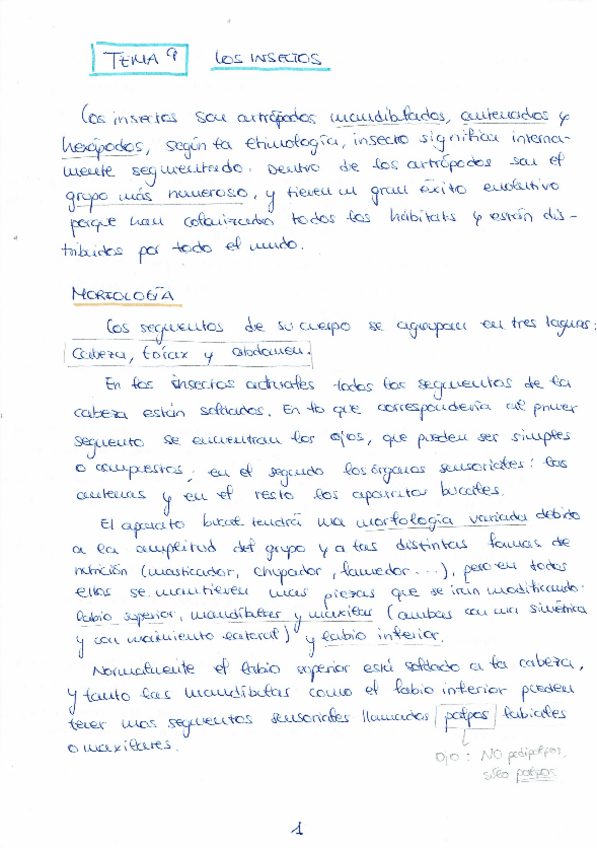 TEMA 9 LOS INSECTOS
Los insectos son artrópodos mandibulados, antenados y
hexápodos, según la etimología, insecto significa interna-
mente segmentado. Dentro de los artrópodos son el
grupo más numeroso, y tienen un gran éxito evolutivo
porque han colonizado todos los hábitats y están dis-
tribuidos por todo el mundo.
MORFOLOGÍA
Los segmentos de su cuerpo se agrupan en tres tagmas:
Cabeza, tórax y abdomen.
En los insectos actuales todos los segmentos de la
cabeza están soldados. En lo que correspondería al primer
segmento se encuentran los ojos, que pueden ser simples
o compuestos; en el segundo los órganos sensoriales: las
antenas y en el resto los aparatos bucales.
El aparato bucal tendrá una morfología variada debido
a la amplitud del grupo y a las distintas formas de
nutrición (masticador, chupador, lamedor...), pero en todos
ellos se mantienen unas piezas que se irán modificando:
labio superior, mandíbulas y maxilas (ambas con una simétrica
y con movimiento lateral) y labio inferior.
Normalmente el labio superior está soldado a la cabeza,
y tanto las mandíbulas como el labio inferior pueden
tener unos segmentos sensoriales llamados palpos labiales
o maxilares.
OJO: NO pedipalpos,
sólo palpos
1